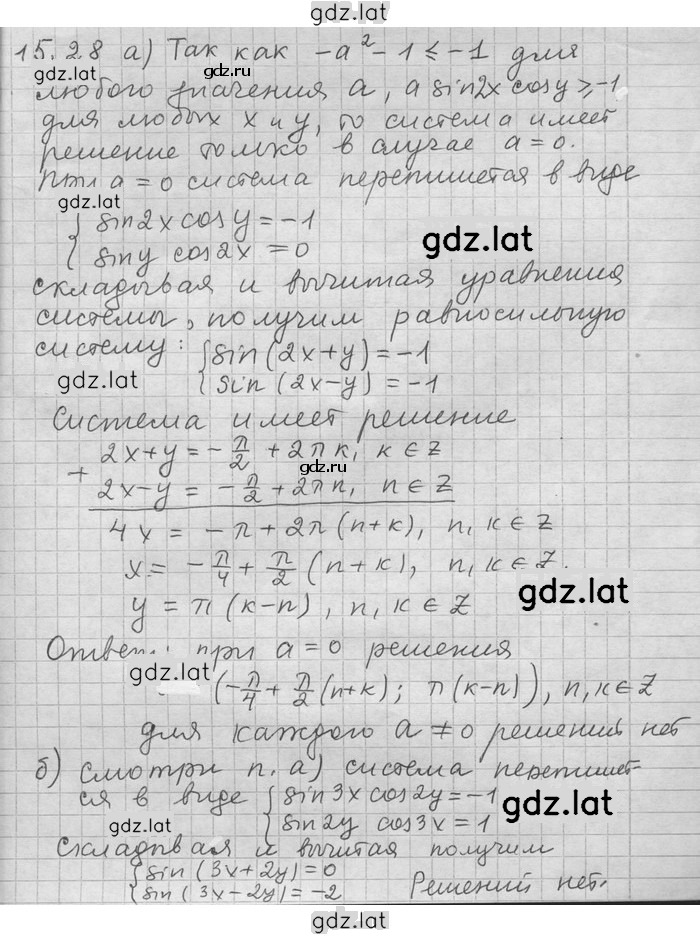 gdz.lat
15.28 а) Так как -a² - 1 ≤ -1 для
любого значения a, a sin2x cosy ≥ -1
для любых x и y, то система имеет
решение только в случае a = 0.
a = 0 система перепишется в виде
gdz.lat
{ sin2x cosy = -1
{ siny cos2x = 0
gdz.lat
складывая и вычитая уравнения
системы, получим равносильную
систему: { sin(2x+y) = -1
{ sin(2x-y) = -1
gdz.lat
Система имеет решение
+ 2x+y = -π/2 + 2πk, k ∈ Z
2x-y = -π/2 + 2πn, n ∈ Z
gdz.lat
4x = -π + 2π(n+k), n, k ∈ Z
x = -π/4 + π/2 (n+k), n, k ∈ Z.
y = π(k-n), n, k ∈ Z
gdz.lat
Ответ: при a = 0 решения
gdz.lat
(-π/4 + π/2 (n+k); π(k-n)), n, k ∈ Z
для каждого a ≠ 0 решений нет
б) смотри п. а) система перепишет-
ся в виде { sin3x cos2y = -1
{ sin2y cos3x = 1
gdz.lat
gdz.lat
складывая и вычитая получим
{ sin(3x+2y) = 0
{ sin(3x-2y) = -2 Решений нет.
gdz.lat